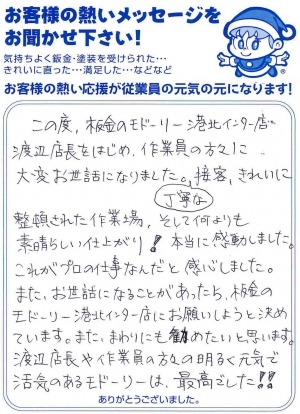 お客様の熱いメッセージを
お聞かせ下さい!
気持ちよく鈑金・塗装を受けられた…
きれいに直った…満足した…などなど
お客様の熱い応援が従業員の元気の元になります!
この度、板金のモドーリー港北インター店
渡辺店長をはじめ、作業員の方々に
大変お世話になりました。丁寧な接客、きれいに
整頓された作業場、そして何よりも
素晴らしい仕上がり!本当に感動しました。
これがプロの仕事なんだと感心しました。
また、お世話になることがあったら、板金の
モドーリー港北インター店にお願いしようと決め
ています。また、まわりにも勧めたいと思います。
渡辺店長や作業員の方々の明るく元気で
活気のあるモドーリーは、最高でした!!
ありがとうございました。